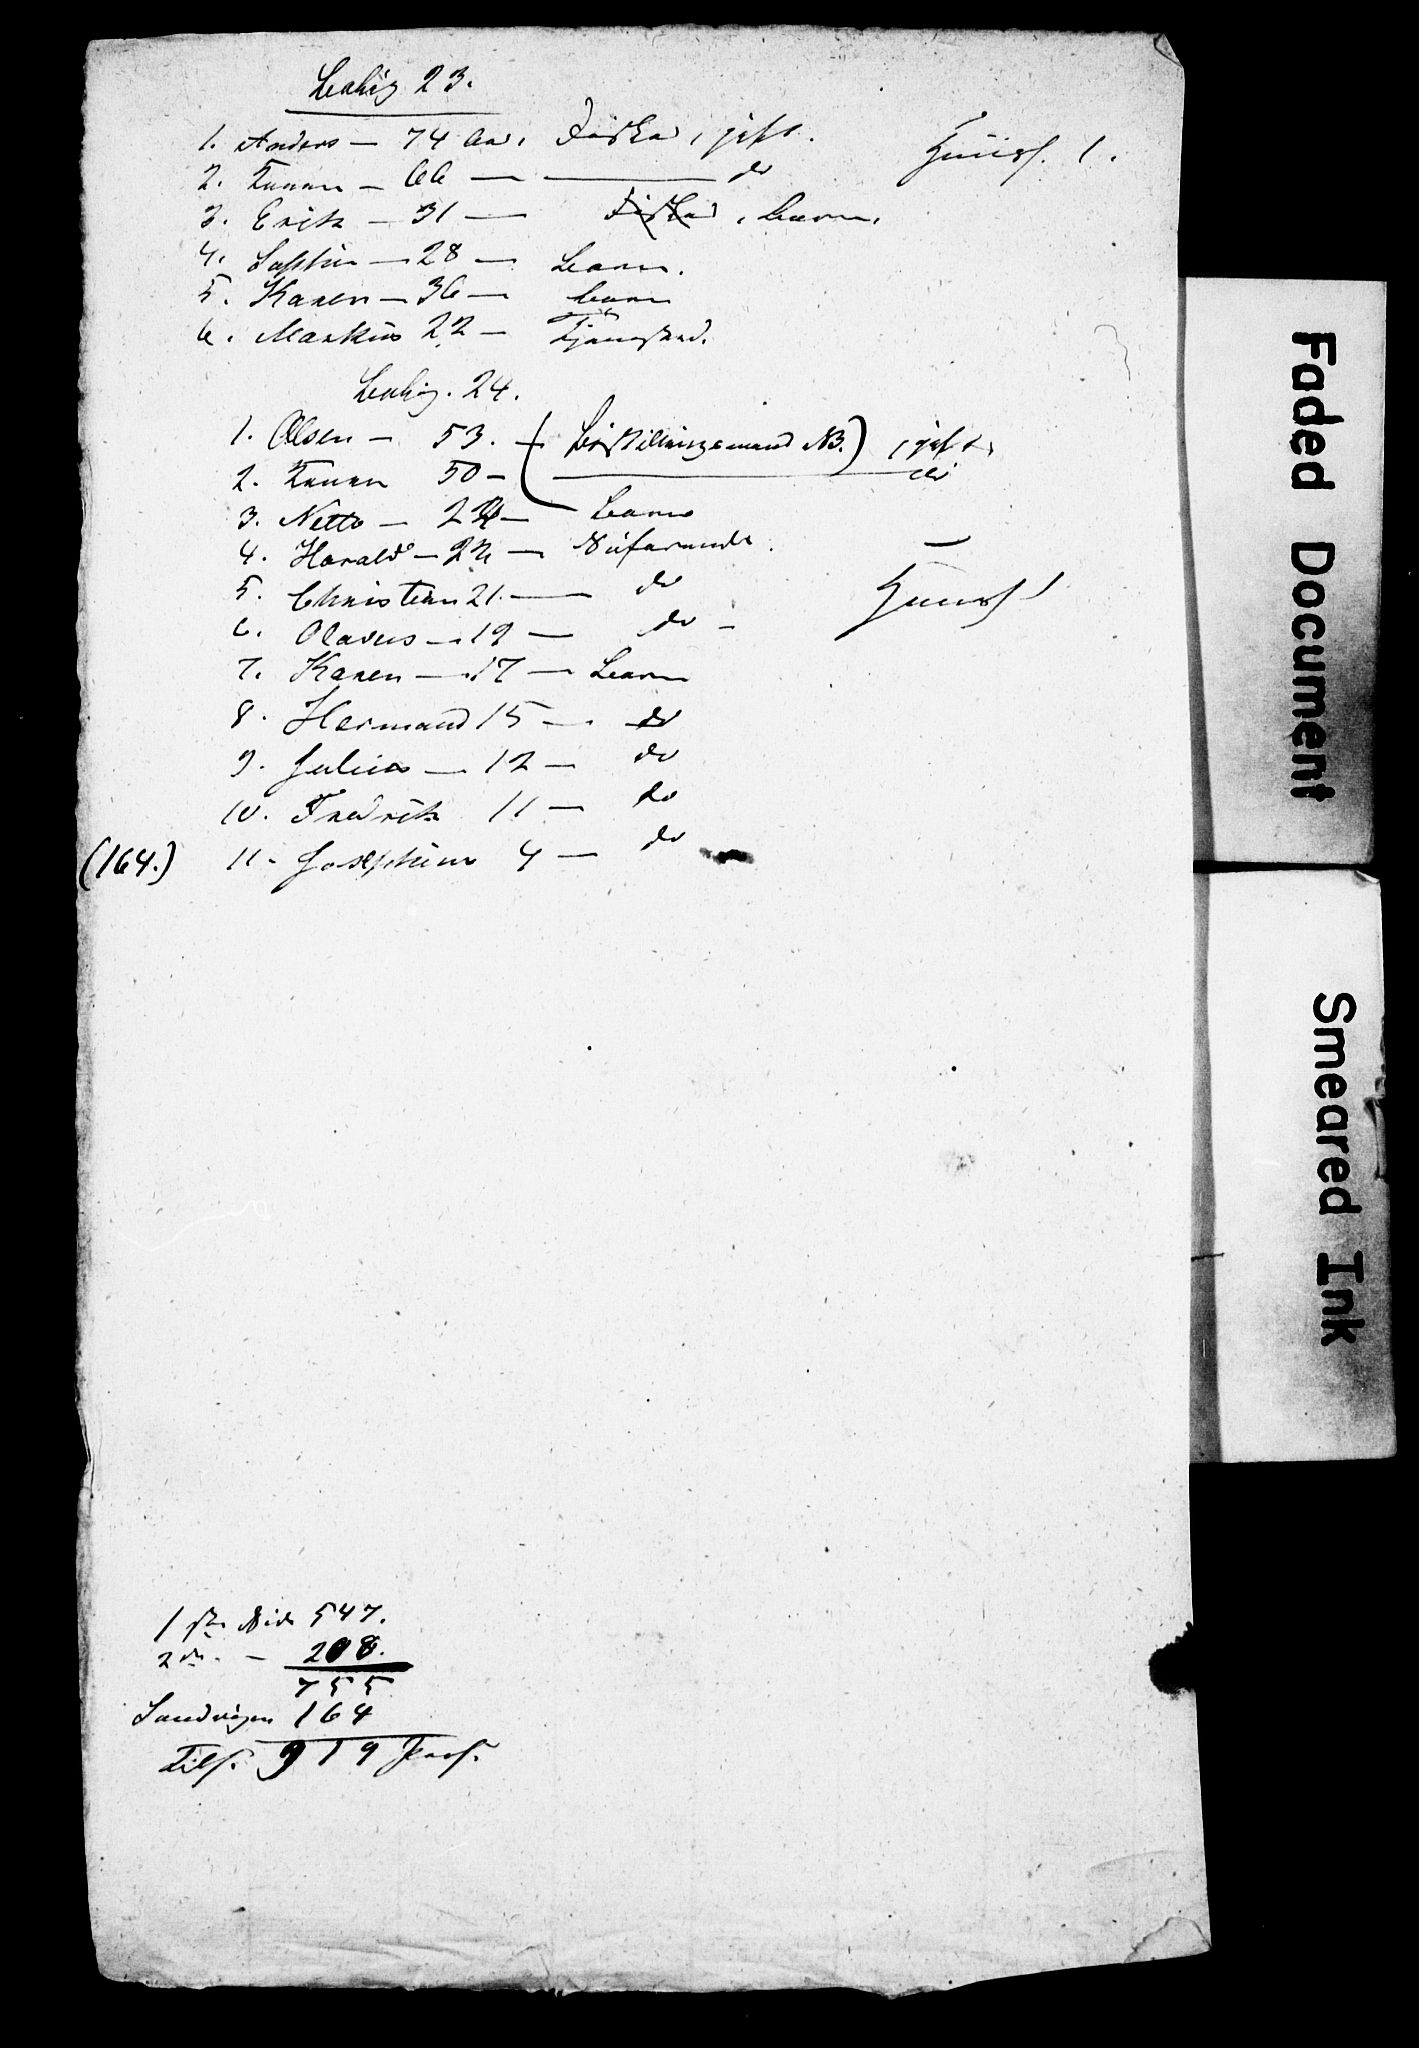 Bolig 23.
1. Anders — 74 Aar, Fisker, gift. Huusf. 1.
2. Konen — 66 — — do
3. Erik — 31 — Fisker, barn.
4. — 28 — barn.
5. Karen — 36 — barn
6. Markus 22 — Tjener
Bolig. 24.
1. Olsen — 53. — (Bestillingsmand NB.) , gift,
2. Konen 50 — — do
3. Netto — 24 — barn
4. Harald — 22 — Søfarende. —
5. Christian 21. — do Huusf 1
6. Olaves — 19 — do —
7. Karen — 17 — barn
8. Hermand 15 — do
9. Julius — 12 — do
10. Fredrik 11 — do
(164.) 11. Josephine 4 — do
1ste Side 547.
2den. — 208.
755
Sandvigen 164
Tils. 919 Pers.
Faded Document
Smeared Ink